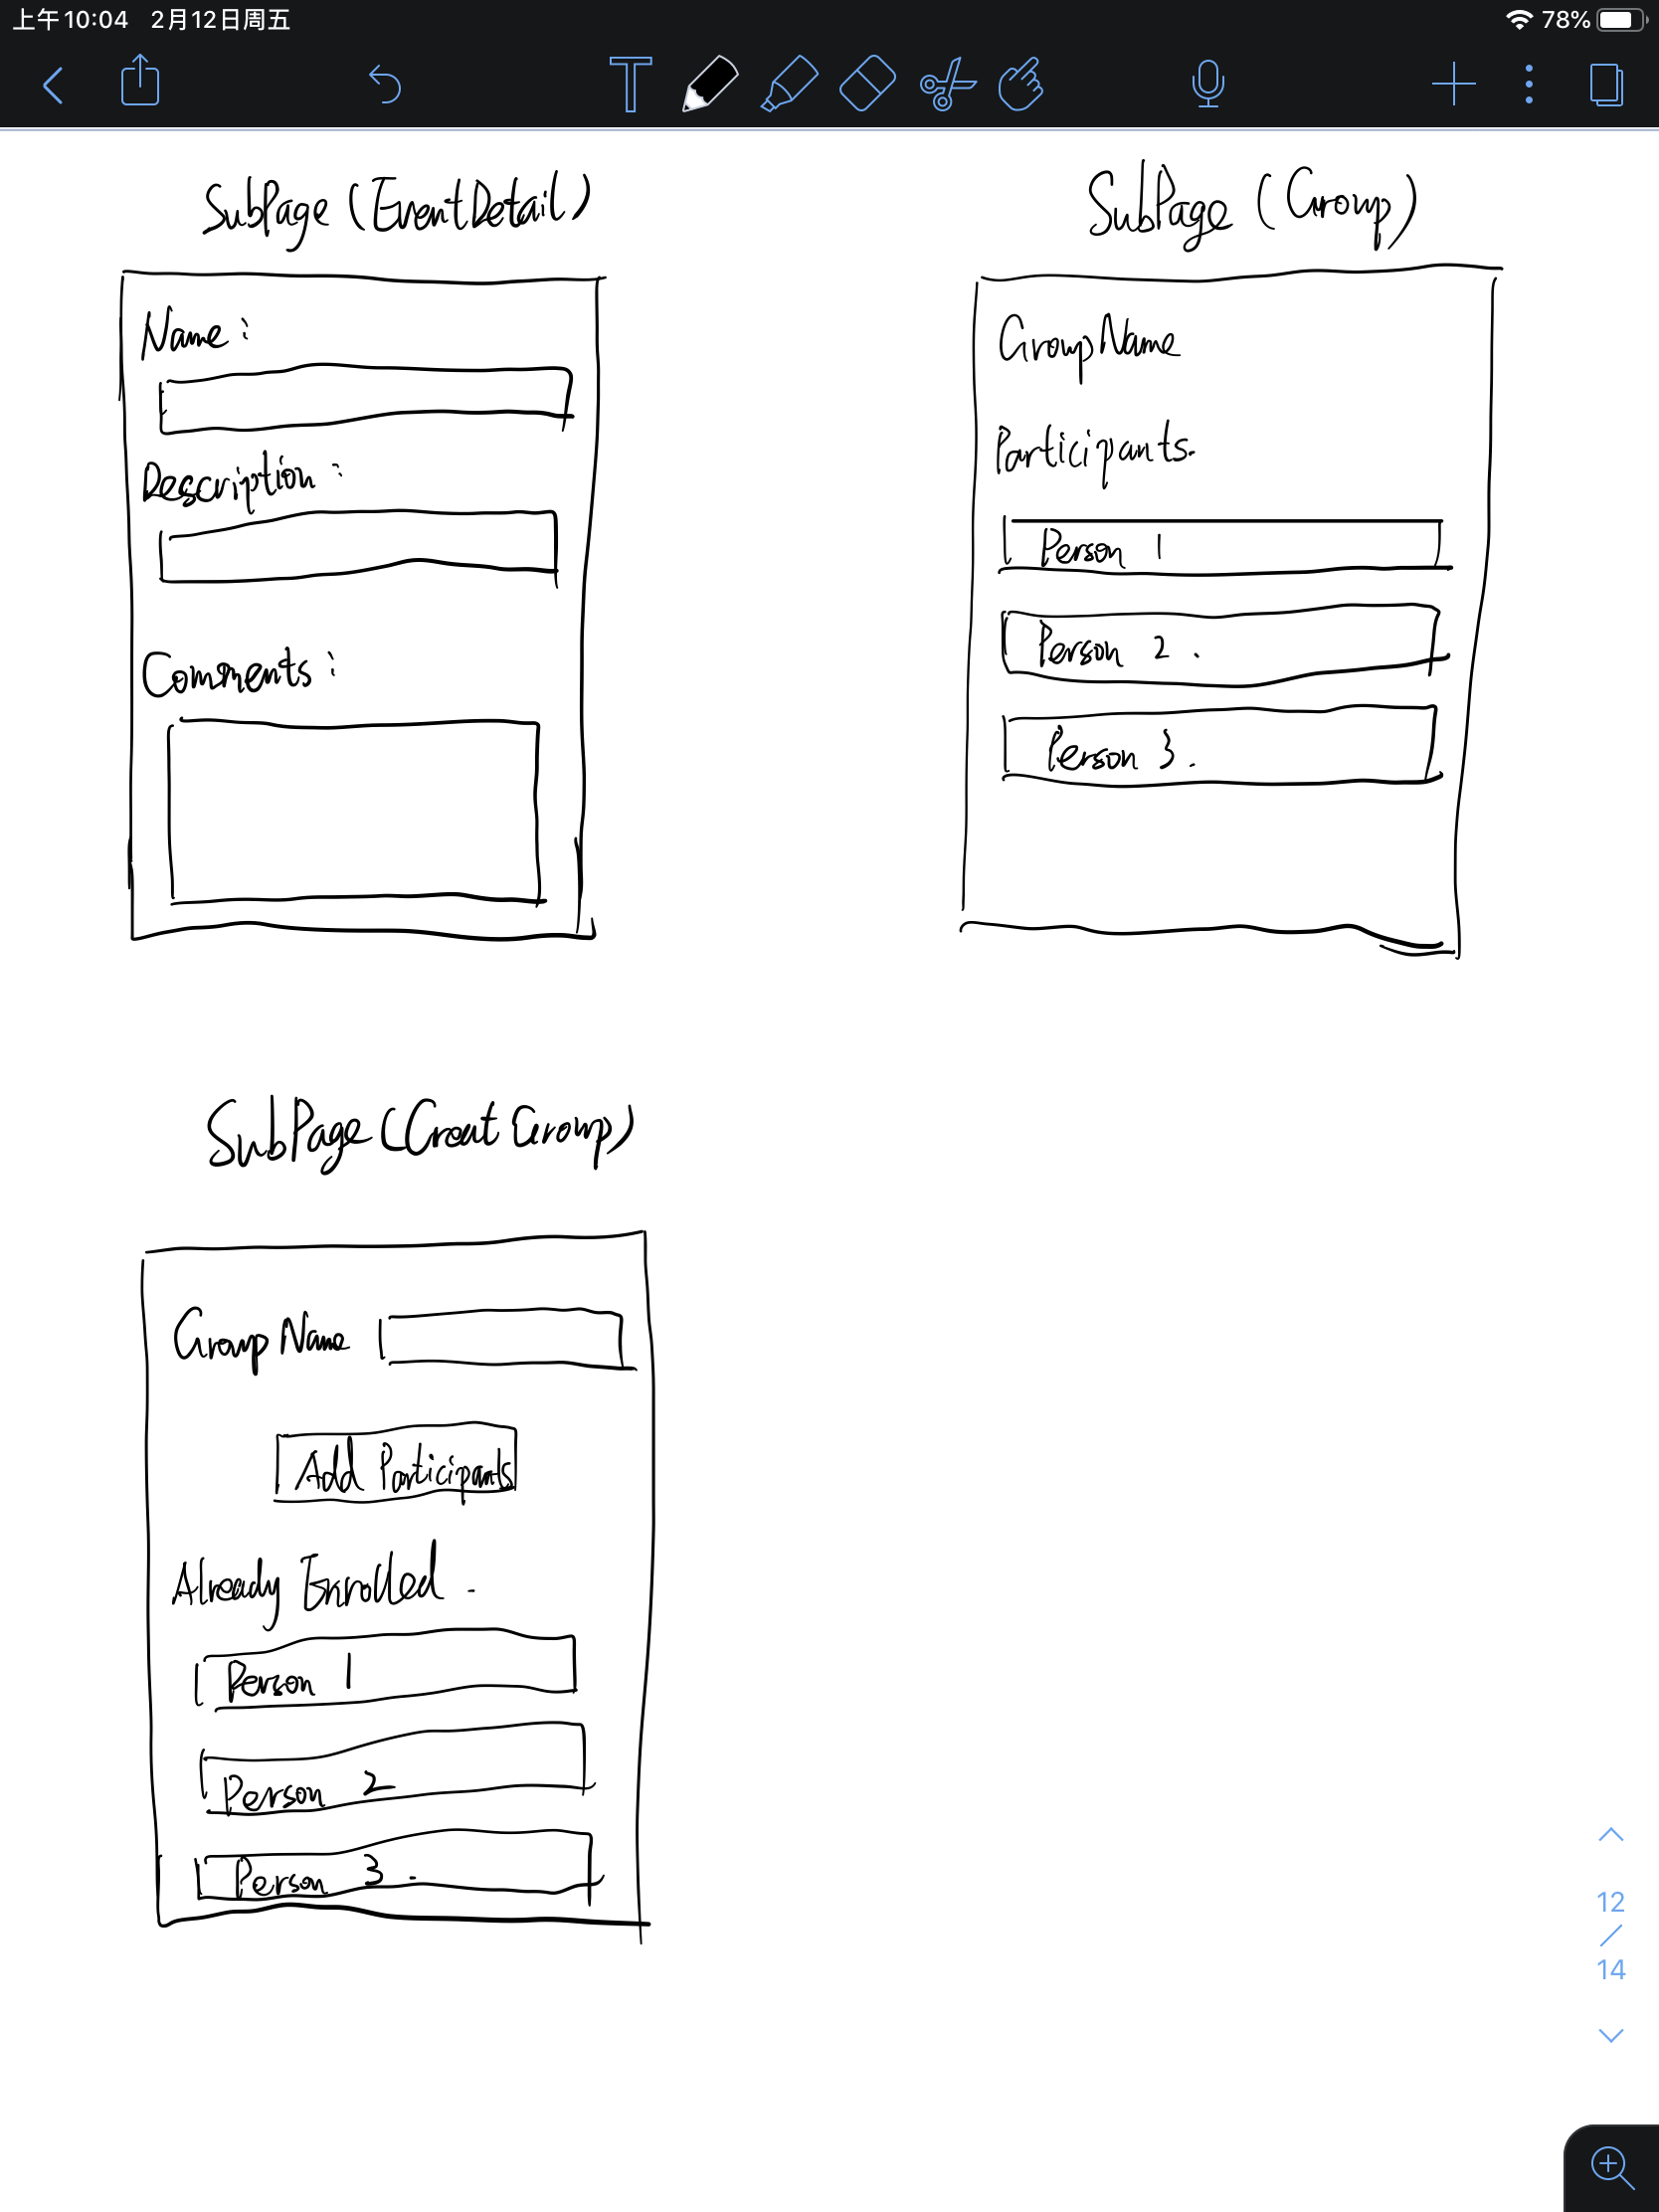 上午10:04 2月12日周五
78%
SubPage (EventDetail)
Name :
Description :
Comments :
SubPage (Group)
GroupName
Participants.
Person 1
Person 2 .
Person 3 .
SubPage (Creat Group)
Group Name
Add Participants
Already Enrolled .
Person 1
Person 2
Person 3 .
12
/
14